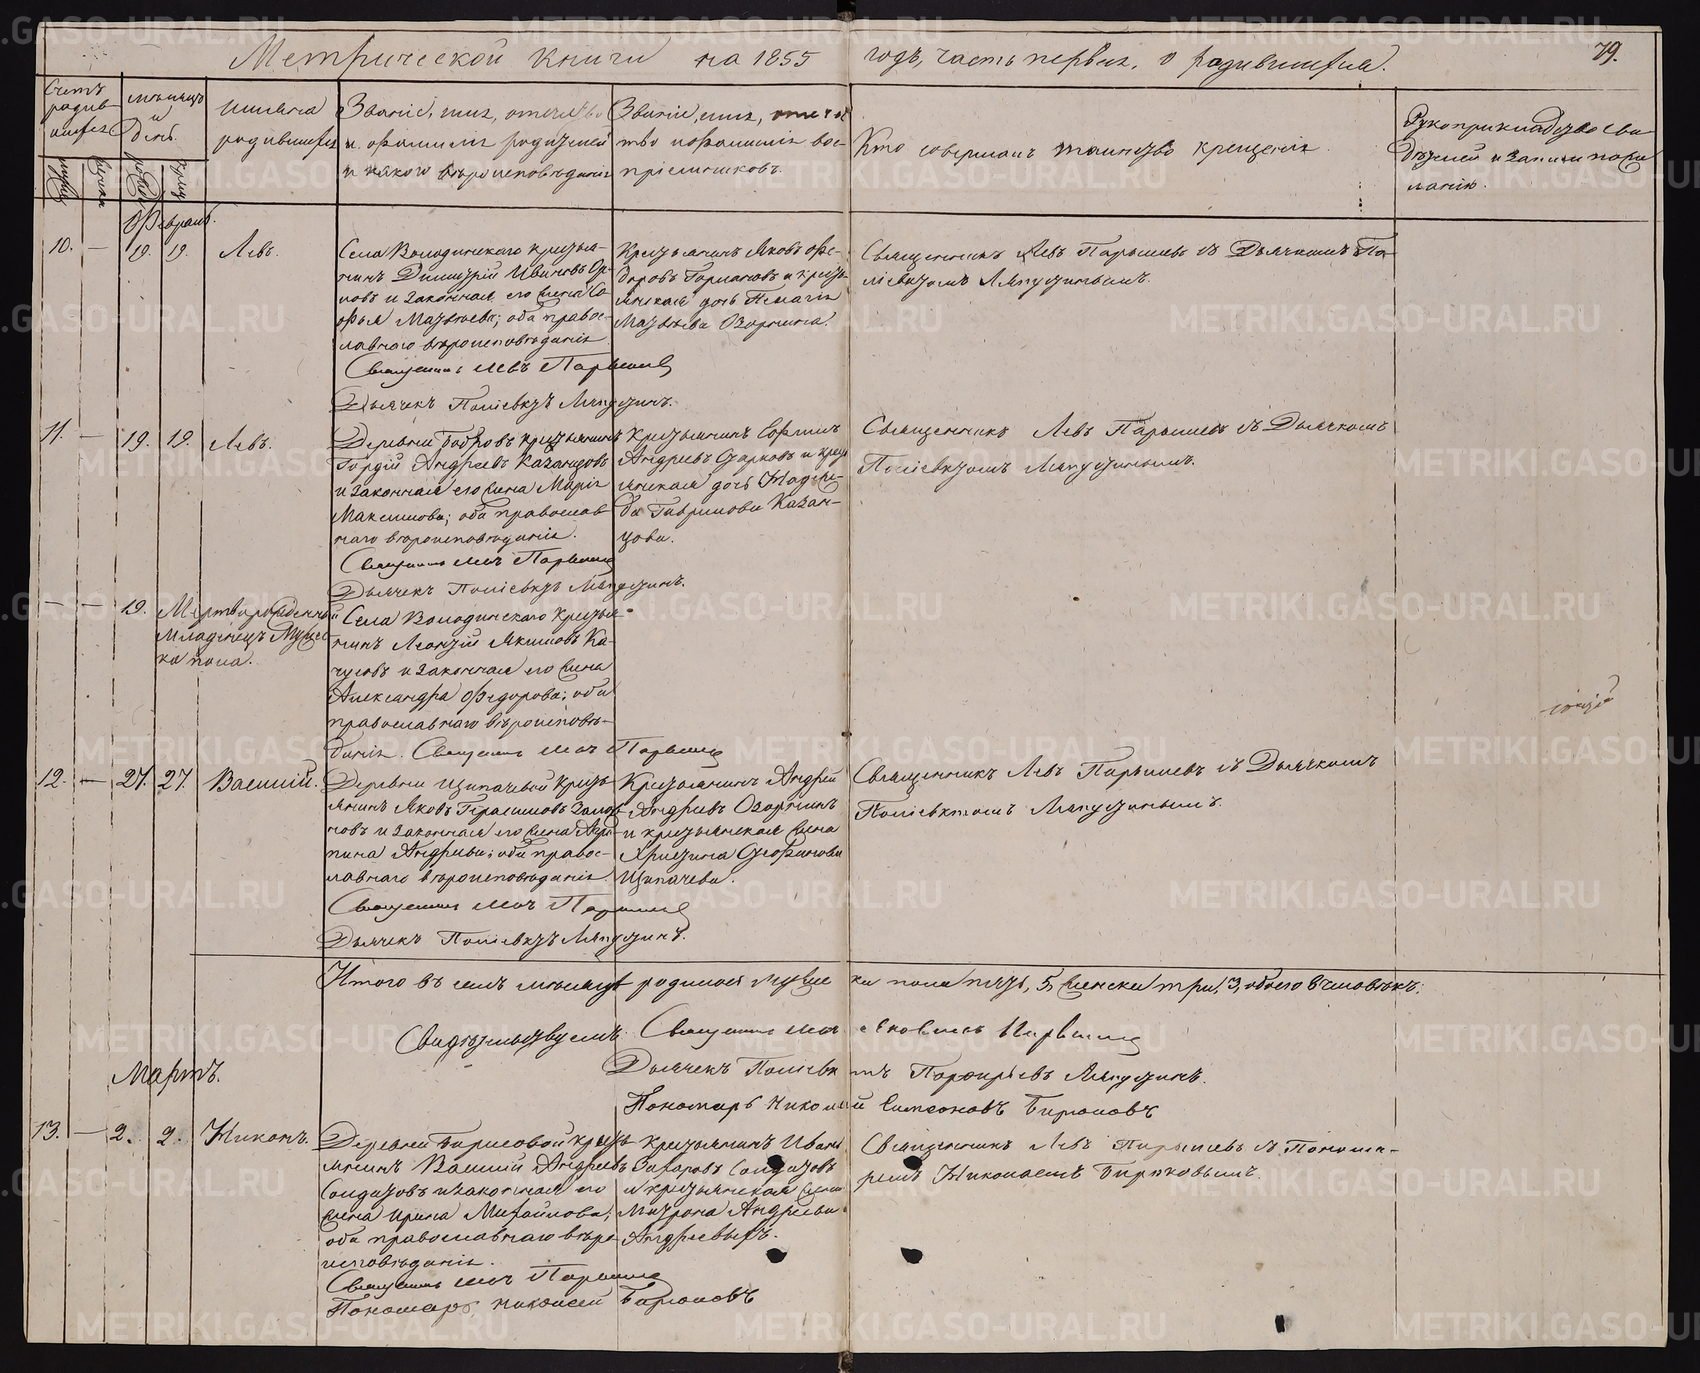 Метрической книги на 1855 годъ, часть первая, о родившихся.
79.
Счетъ родив-
шихся
Мѣсяцъ
и
День.
Имена
родившихся
Званіе, имя, отчество
и фамилія родителей
и какого вѣроисповѣданія
Званіе, имя, отчес
тво и фамилія вос-
пріемниковъ.
Кто совершалъ таинство крещенія.
Рукоприкладство сви
дѣтелей и записи по же
ланію.
Февраль.
10. — 19. 19. Левъ.
Села Володинскаго крестья-
нинъ Димитрій Ивановъ
и законная его жена Со
фья Матвѣева; оба правос-
лавнаго вѣроисповѣданія
Священникъ Левъ Парышевъ
Дьячекъ Поліевктъ Ляпустинъ.
Крестьянинъ Яковъ Ѳе-
доровъ и кресть
янская дочь Пелагія
Матвѣева Озорнина.
Священникъ Левъ Парышевъ съ Дьячкомъ По-
ліевктомъ Ляпустинымъ.
11. — 19. 19. Левъ.
Деревни Бобровъ крестьянинъ
Гордій Андреевъ Казанцовъ
и законная его жена Марія
Максимова; оба православ
наго вѣроисповѣданія.
Священникъ Левъ Парышевъ
Дьячекъ Поліевктъ Ляпустинъ.
Крестьянинъ Ефимъ
Андреевъ Старковъ и крест
янская дочь Надеж-
да Гаврилова Казан-
цова.
Священникъ Левъ Парышевъ съ Дьячкомъ
Поліевктомъ Ляпустинымъ.
— — 19. Мертворожденный
младенецъ мужес
ка пола.
Села Володинскаго крестья-
нинъ Леонтій Якимовъ Ка-
чусовъ и законная его жена
Александра Ѳедорова; оба
православнаго вѣроисповѣ-
данія. Священникъ Левъ Парышевъ
12. — 27. 27. Василій.
Деревни Щипачевой кресть
янинъ Яковъ Герасимовъ
и законная его жена Агри
пина Андреева; оба правос-
лавнаго вѣроисповѣданія.
Священникъ Левъ Парышевъ
Дьячекъ Поліевктъ Ляпустинъ.
Крестьянинъ Андрей
Андреевъ Озорнинъ
и крестьянская жена
Христина Стефанова
Щипачева.
Священникъ Левъ Парышевъ съ Дьячкомъ
Поліевктомъ Ляпустинымъ.
Итого въ семъ мѣсяцѣ родилося мужес ка пола пять, 5, женска три, 3, обоего 8 человѣкъ.
Свидѣтельствуемъ: Священникъ Левъ Яковлевъ Парышевъ
Дьячекъ Поліевктъ Порфирьевъ Ляпустинъ.
Пономарь Николай Симеоновъ Бирюковъ
Мартъ.
13. — 2. 2. Никонъ.
Деревни Борисовой кресть
янинъ Василій Андреевъ
Солдатовъ и законная его
жена Ирина Михайлова;
оба православнаго вѣро
исповѣданія.
Священникъ Левъ Парышевъ
Пономарь Николай Бирюковъ
Крестьянинъ Иванъ
Захаровъ Солдатовъ
и крестьянская жена
Матрона Андреева
Андреевыхъ.
Священникъ Левъ Парышевъ съ Понома-
ремъ Николаемъ Бирюковымъ.
METRIKI.GASO-URAL.RU